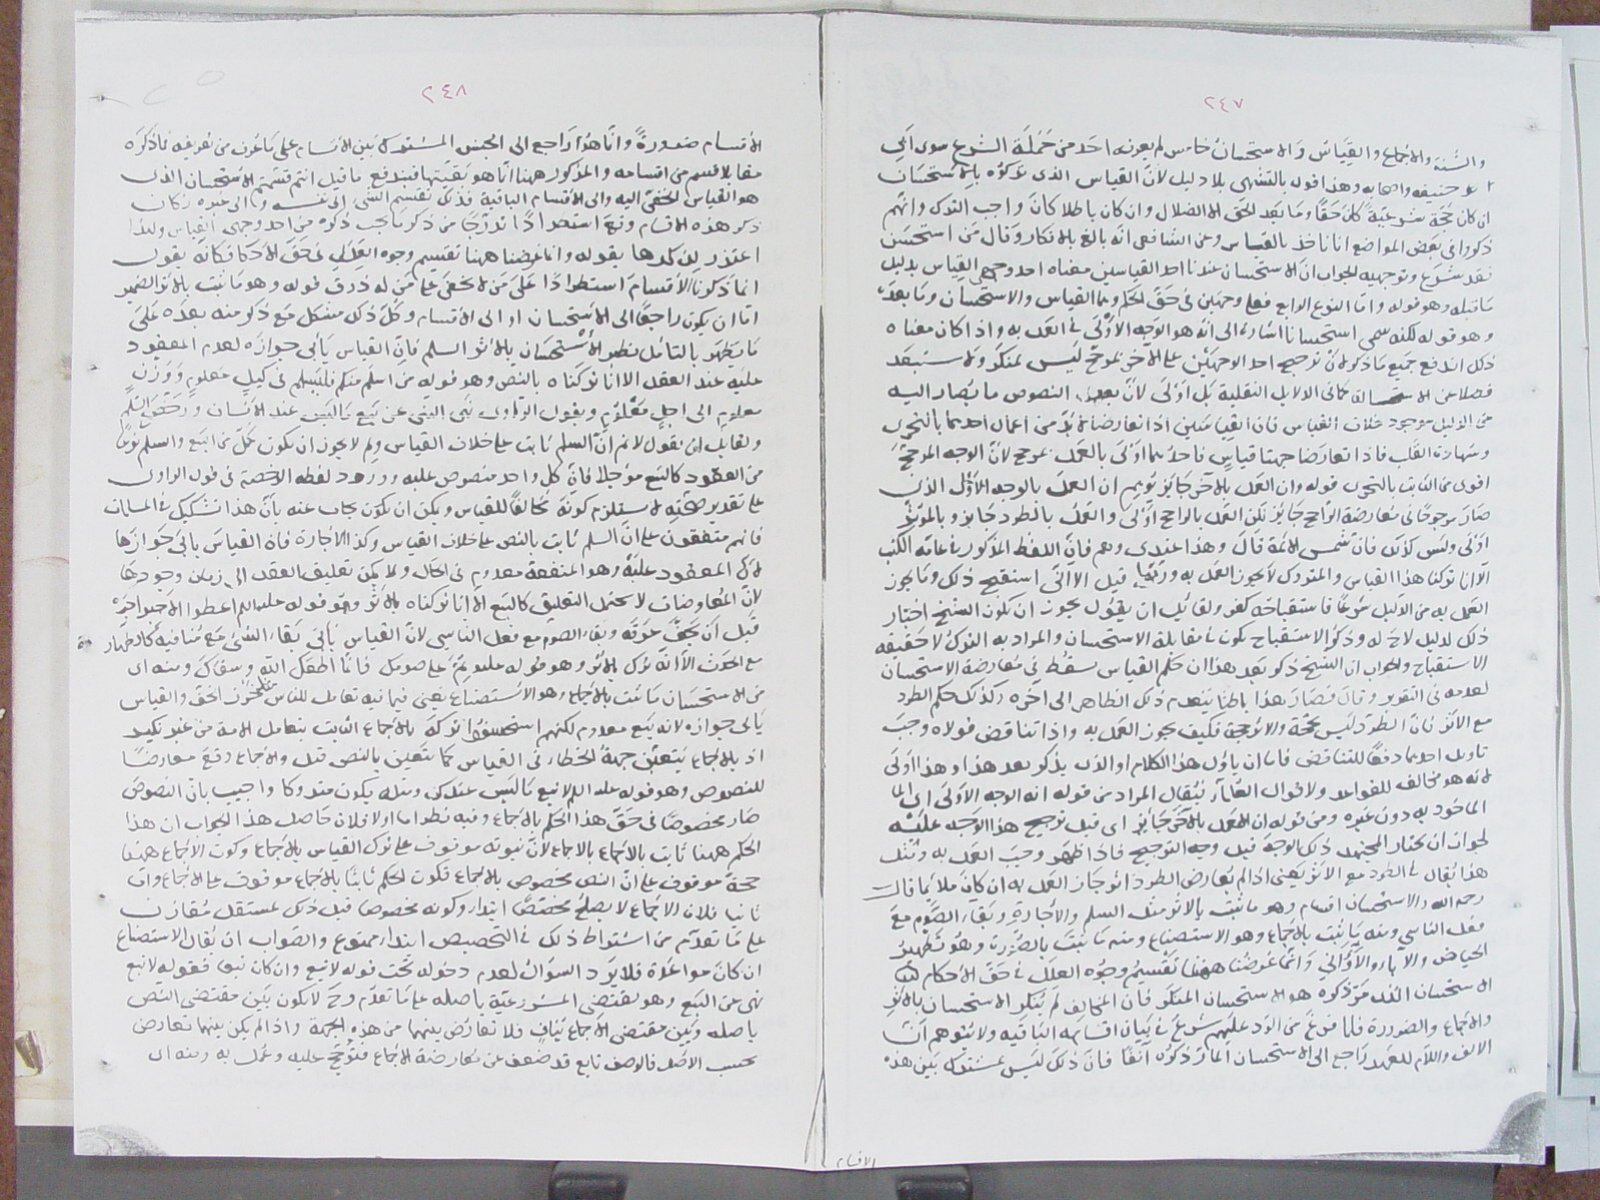 ٢٤٧
والسنة والاجماع والقياس والاستحسان خامس لم يعرفه احد من حملة الشرع سوى ابي
حنيفه واصحابه وهذا قول بالتشهي بلا دليل لان القياس الذي تركوه بالاستحسان
ان كان حجة شرعية كان حقا وما بعد الحق الا الضلال وان كان باطلا كان واجب الترك وانهم
ذكروا في بعض المواضع انا ناخذ بالقياس وعن الشافعي انه بالغ بالانكار وقال من استحسن
فقد شرع وتوجيه الجواب ان الاستحسان عندنا احد القياسين معناه احد وجهي القياس بدليل
ما قبله وهو قوله واما النوع الرابع فعلى وجهين في حق الحكم وهما القياس والاستحسان وما بعده
وهو قوله لكنه سمي استحسانا اشارة الى انه هو الوجه الاولى في العمل به واذا كان معناه
ذلك اندفع جميع ما ذكر لان ترجيح احد الوجهين على الاخر بمرجح ليس بمنكر ولا مستبعد
فضلا عن الاستحالة كما في الدلايل النقلية بل اولى لان بعد النصوص ما يصار اليه
من الدليل موجود خلاف القياس فان القياسين اذا تعارضا لا بد من اعمال احدهما بالتحري
وشهادة القلب فاذا تعارضا جهتا قياس فاحدهما اولى بالعمل بمرجح لان الوجه المرجح
اقوى من الثابت بالتحري قوله وان العمل بالاخر جايز يوهم ان العمل بالوجه الاول الذي
صار مرجوحا في معارضة الراجح جايز لكن العمل بالراجح اولى والعمل بالطرد جايز وبالمؤثر
اولى وليس كذلك فان شمس الائمة قال وهذا عندي وهم فان اللفظ المذكور في عامة الكتب
الا انا تركنا هذا القياس والمتروك لا يجوز العمل به وربما قيل الا اني استقبح ذلك وما يجوز
العمل به من الدليل شرعا فاستقباحه كفر ولقائل ان يقول يجوز ان يكون الشيخ اختار
ذلك لدليل لاح له وذكر الاستقباح يكون في مقابلة الاستحسان والمراد به الترك لا حقيقة
الاستقباح والجواب ان الشيخ ذكر بعد هذا ان حكم القياس سقط في معارضة الاستحسان
لعدمه في التقدير وقال فصار هذا باطنا ينعدم ذلك الظاهر الى اخره وكذلك حكم الطرد
مع الاثر فان الطرد ليس بحجة والاثر حجة فكيف يجوز العمل به واذا تناقض قولاه وجب
تاويل احدهما دفعا للتناقض فاما ان ياول هذا الكلام او الذي يذكر بعد هذا وهذا اولى
لانه هو مخالف للقواعد ولاقوال العلماء فيقال المراد من قوله انه الوجه الاولى اي
الماخوذ به دون غيره ومن قوله ان العمل بالاخر جايز اي قبل ترجيح هذا الوجه عليه
لجواز ان يختار المجتهد ذلك الوجه قبل وجه الترجيح فاذا ظهر وجب العمل به ومثل
هذا يقال في الطرد مع الاثر يعني اذا لم يعارض الطرد اثر جاز العمل به ان كان ملايما قال
رحمه الله والاستحسان اقسام وهو ما ثبت بالاثر مثل السلم والاجارة وبقاء الصوم مع
فعل الناسي ومنه ما ثبت بالاجماع وهو الاستصناع ومنه ما ثبت بالضرورة وهو تطهير
الحياض والابار والاواني وانما غرضنا ههنا تقسيم وجوه العلل في حق الاحكام
الاستحسان الذي مر ذكره هو الاستحسان المنكر فان المخالف لم ينكر الاستحسان بالاثر
والاجماع والضرورة فلما فرغ من الرد عليهم شرع في بيان اقسامه الباقيه ولا يتوهم ان
الالف واللام للعهد راجع الى الاستحسان المار ذكره انفا فان ذلك ليس بمشترك بين هذه
الاقسام
٢٤٨
الاقسام ضرورة وانما هذا راجع الى الجنس المشترك بين الاقسام على ما عرف من تعريفه فما ذكره
مقابلا قسم من اقسامه والمذكور ههنا انما هو بقيتها فيندفع ما قيل انتم قسمتم الاستحسان الذي
هو القياس الخفي اليه والى الاقسام الباقية فذلك تقسيم الشئ الى نفسه والى غيره وكان
ذكر هذه الاقسام وقع استطرادا تدرجا من ذكر ما يجب ذكره من احد وجهي القياس ولهذا
اعتذر لذكرها بقوله وانما غرضنا ههنا تقسيم وجوه العلل في حق الاحكام فكانه يقول
انما ذكرنا الاقسام استطرادا على من لا يخفى على من له ذوق قوله وهو ما ثبت بالاثر الضمير
اما ان يكون راجعا الى الاستحسان او الى الاقسام وكل ذلك مشكل مع ذكر منه بعده على
ما يظهر بالتامل نظير الاستحسان بالاثر السلم فان القياس يابى جوازه لعدم المعقود
عليه عند العقد الا انا تركناه بالنص وهو قوله من اسلم منكم فليسلم في كيل معلوم ووزن
معلوم الى اجل معلوم وبقول الراوي نهى النبي عن بيع ما ليس عند الانسان ورخص في السلم
ولقايل ان يقول لا نم ان السلم ثابت على خلاف القياس ولم لا يجوز ان يكون كل من البيع والسلم نوعا
من العقود كالبيع مؤجلا فان كل واحد منصوص عليه وورود لفظه الرخصة في قول الراوي
على تقدير صحته لا يستلزم كونه مخالفا للقياس ويمكن ان يكون يجاب عنه بان هذا تشكيك في المسلمات
فانهم متفقون على ان السلم ثابت بالنص على خلاف القياس وكذا الاجارة فان القياس يابى جوازها
لان المعقود عليه وهو المنفعة معدوم في الحال ولا يمكن تعليق العقد الى زمان وجودها
لان المعاوضات لا تحتمل التعليق كالبيع الا انا تركناه بالاثر وهو قوله عليه السلام اعطوا الاجير اجره
قبل ان يجف عرقه وبقاء الصوم مع فعل الناسي لان القياس يابى بقاء الشئ مع منافيه كالطهارة
مع الحدث الا انه ترك بالاثر وهو قوله عليه السلام تم على صومك فانما اطعمك الله وسقاك ومنه اي
من الاستحسان ما ثبت بالاجماع وهو الاستصناع يعني فيما فيه تعامل للناس مثل خرز الخف والقياس
يابى جوازه لانه بيع معدوم لكنهم استحسنوا تركه بالاجماع الثابت بتعامل الامة من غير نكير
اذ بالاجماع يتعين جهة الخطاء في القياس كما يتعين بالنص قيل والاجماع وقع معارضا
للنصوص وهو قوله عليه السلام لا تبع ما ليس عندك ومثله يكون متروكا واجيب بان النصوص
صار مخصوصا في حق هذا الحكم بالاجماع وفيه نظر اما اولا فلان حاصل هذا الجواب ان هذا
الحكم ههنا ثابت بالاجماع لان ثبوته موقوف على ترك القياس بالاجماع وكون الاجماع ههنا
حجة موقوف على ان النص مخصوص بالاجماع فكون الحكم ثابتا بالاجماع موقوف على الاجماع واما
ثانيا فلان الاجماع لا يصلح مخصصا ابتداء وكونه مخصوصا قبل ذلك بمستقل مقارن
على ما تقدم من اشتراط ذلك في التخصيص ابتداء ممنوع والصواب ان يقال الاستصناع
ان كان مواعدة فلا يرد السؤال لعدم دخوله تحت قوله لا تبع وان كان بيعا فقوله لا تبع
نهى عن البيع وهو يقتضي المشروعية باصله على ما تقدم وح لا يكون بين مقتضى النص
باصله وبين مقتضى الاجماع تناف فلا تعارض بينهما من هذه الجهة واذا لم يكن بينهما تعارض
بحسب الاصل فالوصف تابع قد ضعف عن معارضة الاجماع فترجح عليه وعمل به ومنه اي